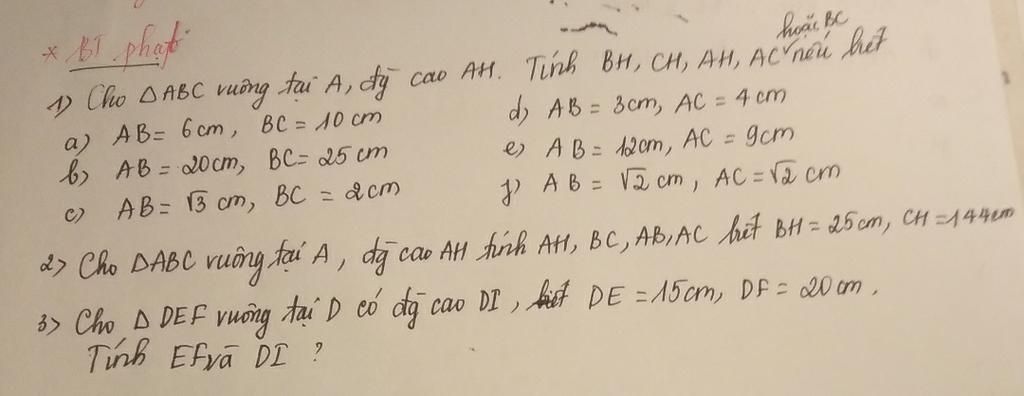 * BT phạt
1) Cho △ABC vuông tại A, đg cao AH. Tính BH, CH, AH, AC hoặc BC nếu biết
a) AB = 6cm, BC = 10 cm
b) AB = 20cm, BC = 25 cm
c) AB = √3 cm, BC = 2cm
d) AB = 3cm, AC = 4 cm
e) AB = 12cm, AC = 9cm
f) AB = √2 cm, AC = √2 cm
2) Cho △ABC vuông tại A, đg cao AH tính AH, BC, AB, AC biết BH = 25cm, CH = 144cm
3) Cho △ DEF vuông tại D có đg cao DI, biết DE = 15cm, DF = 20cm.
Tính EF và DI ?